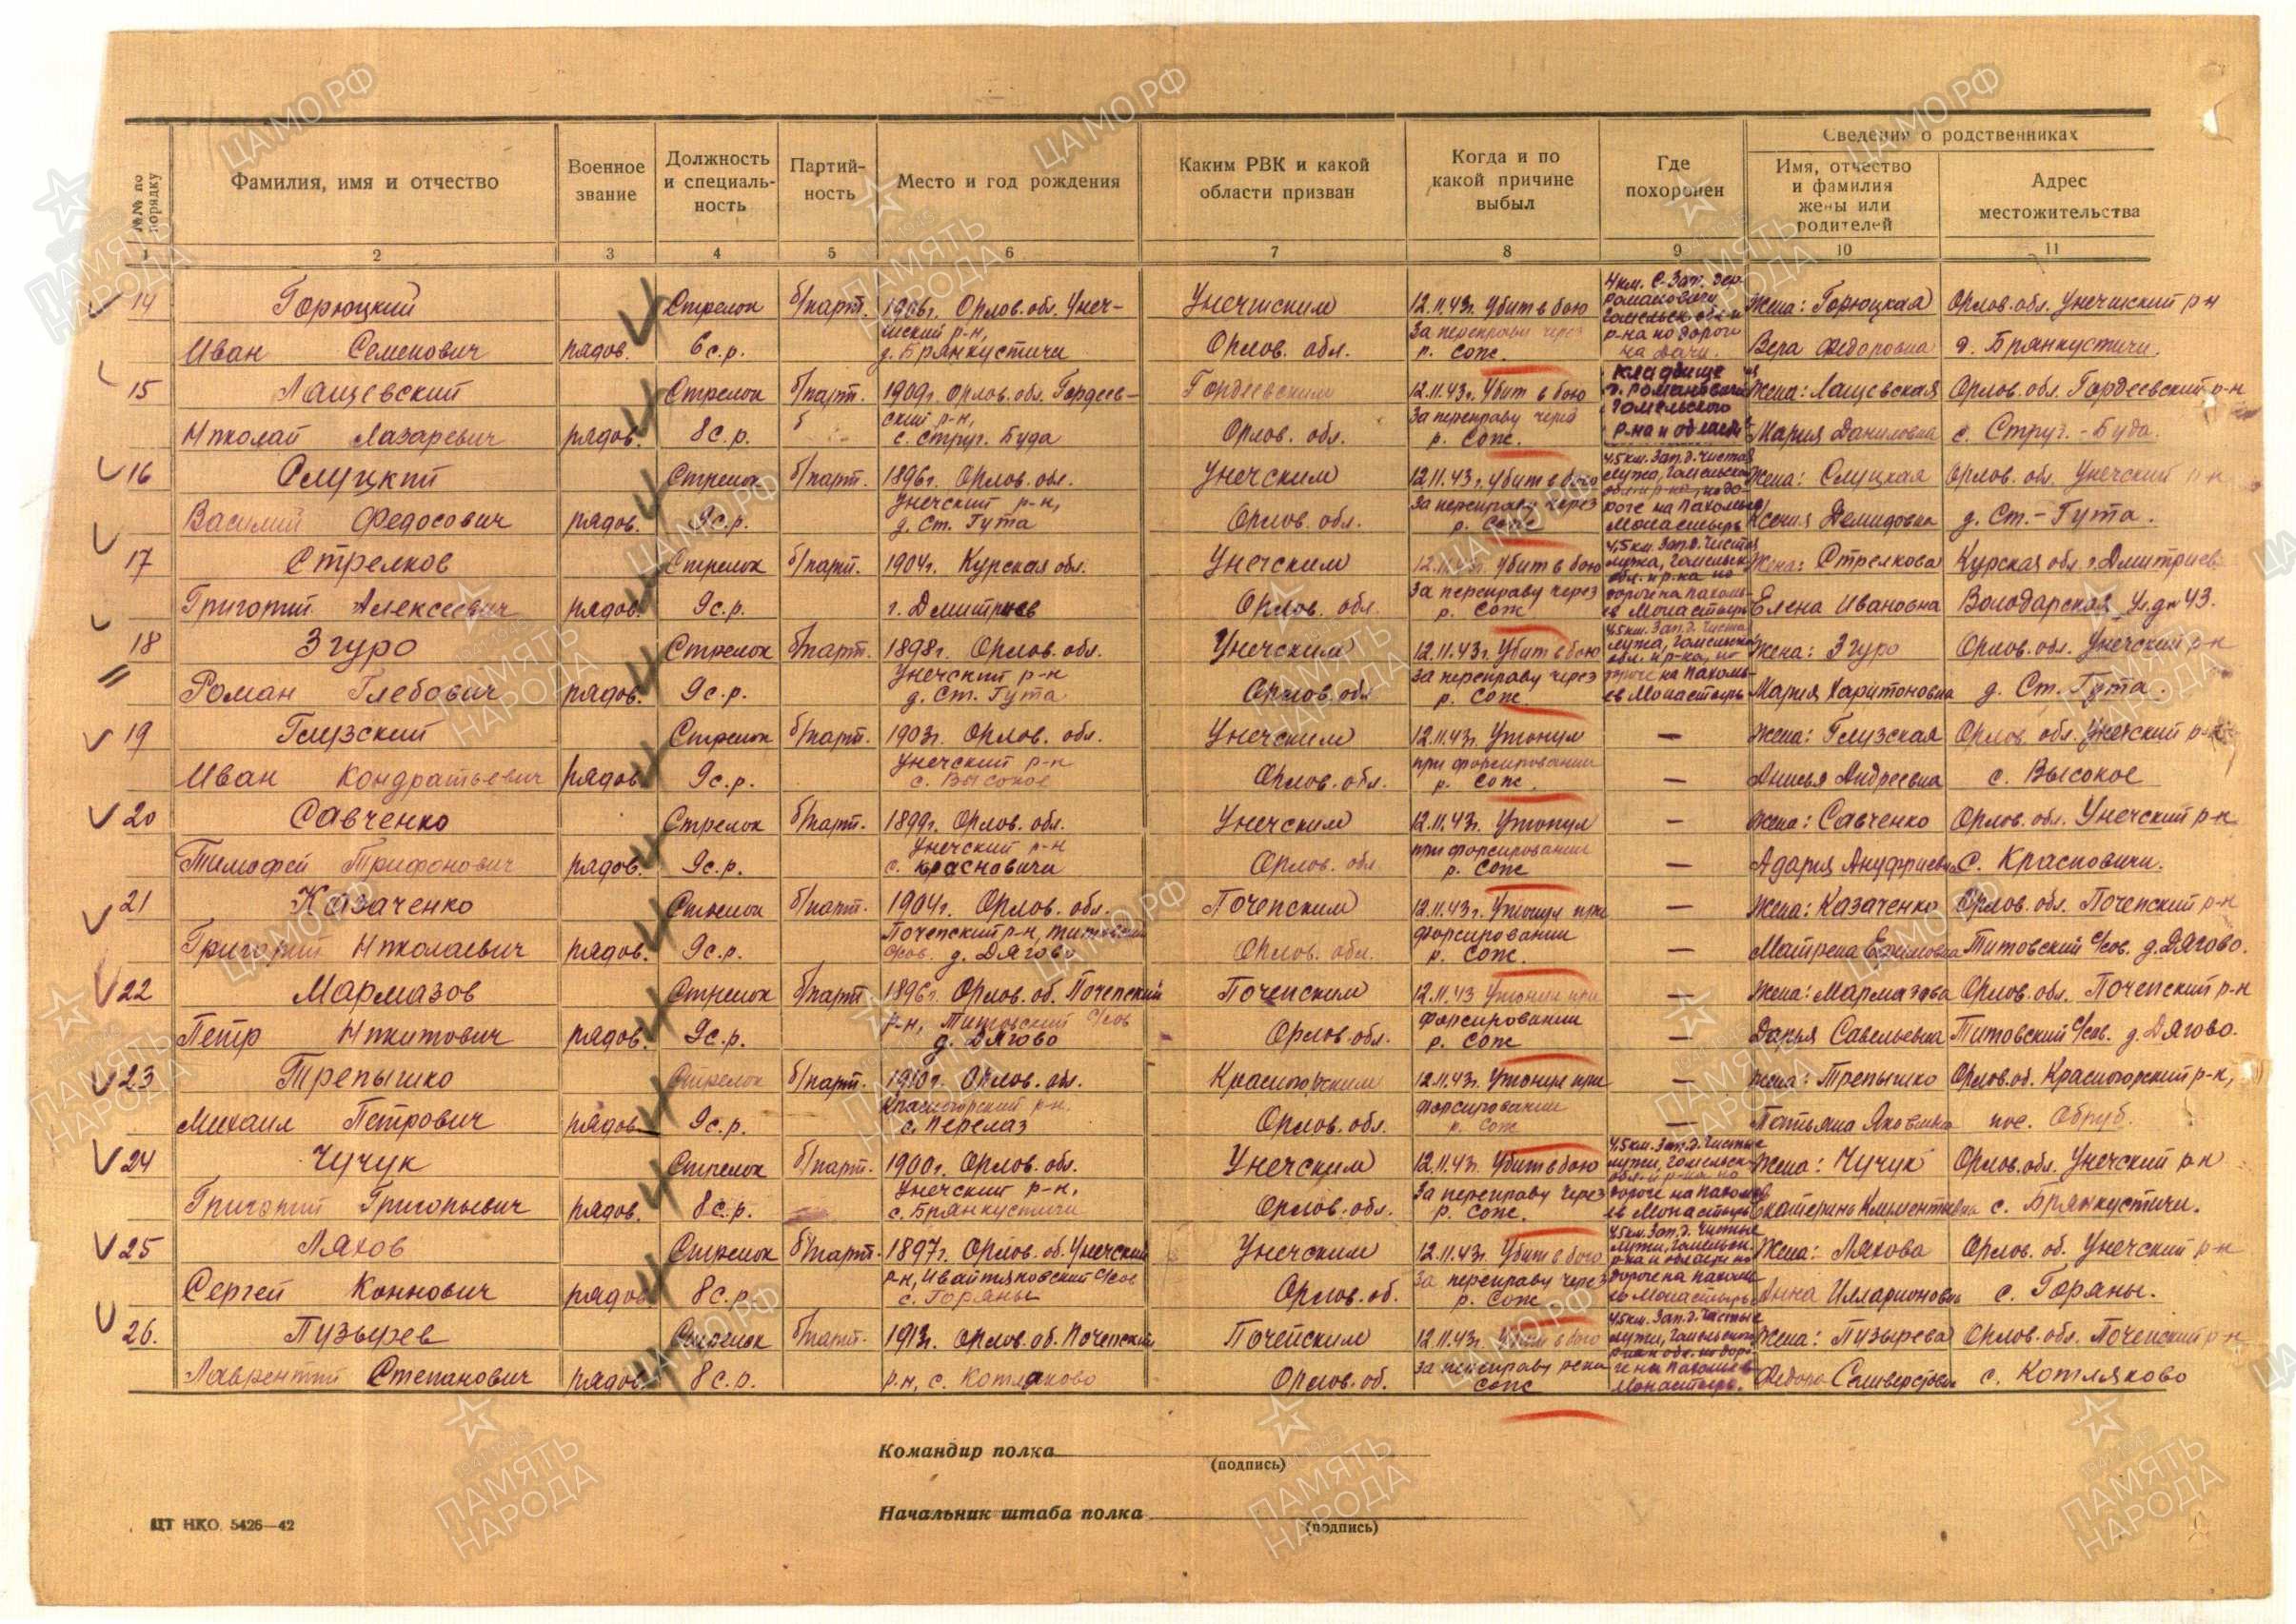 Сведения о родственниках
№№ по порядку
Фамилия, имя и отчество
Военное звание
Должность и специальность
Партийность
Место и год рождения
Каким РВК и какой области призван
Когда и по какой причине выбыл
Где похоронен
Имя, отчество и фамилия жены или родителей
Адрес местожительства
1 2 3 4 5 6 7 8 9 10 11
14 Горюцкий Стрелок б/парт. 1906г. Орлов. обл. Унеч- Унечским 12.11.43г. Убит в бою Жена: Горюцкая Орлов. обл. Унечский р-н
Иван Семенович рядов. 6с.р. ский р-н, д. Брянкустичи Орлов. обл. за переправу через р. Сож. Вера Федоровна д. Брянкустичи.
15 Лащевский Стрелок б/парт. 1909г. Орлов. обл. Гордеев- Гордеевским 12.11.43г. Убит в бою кладбище д. Романовичи Жена: Лащевская Орлов. обл. Гордеевский р-н
Николай Лазаревич рядов. 8с.р. ский р-н, с. Струг. Буда Орлов. обл. за переправу через р. Сож. Гомельского р-на и области Мария Даниловна с. Струг.-Буда.
16 Слуцкий Стрелок б/парт. 1896г. Орлов. обл. Унечским 12.11.43г. Убит в бою Жена: Слуцкая Орлов. обл. Унечский р-н
Василий Федосович рядов. 9с.р. Унечский р-н, д. Ст. Гута Орлов. обл. за переправу через р. Сож Монастырь Ксения Демидовна д. Ст.-Гута.
17 Стрелков Стрелок б/парт. 1904г. Курская обл. Унечским 12.11.43г. Убит в бою Жена: Стрелкова Курская обл. г. Дмитриев
Григорий Алексеевич рядов. 9с.р. г. Дмитриев Орлов. обл. за переправу через р. Сож Монастырь Елена Ивановна Володарская ул. д. 43.
18 Згуро Стрелок б/парт. 1898г. Орлов. обл. Унечским 12.11.43г. Убит в бою Жена: Згуро Орлов. обл. Унечский р-н
Роман Глебович рядов. 9с.р. Унечский р-н д. Ст. Гута Орлов. обл за переправу через р. Сож. Монастырь Мария Харитоновна д. Ст. Гута.
19 Глузский Стрелок б/парт. 1903г. Орлов. обл. Унечским 12.11.43г. Утонул — Жена: Глузская Орлов. обл. Унечский р-н
Иван Кондратьевич рядов 9с.р. Унечский р-н с. Высокое Орлов. обл. при форсировании р. Сож. — Анисья Андреевна с. Высокое
20 Савченко Стрелок б/парт. 1899г. Орлов. обл. Унечским 12.11.43г. Утонул — Жена: Савченко Орлов. обл. Унечский р-н
Тимофей Трифонович рядов. 9с.р. Унечский р-н с. Красновичи Орлов. обл. при форсировании р. Сож — с. Красновичи.
21 Казаченко Стрелок б/парт. 1904г. Орлов. обл. Почепским 12.11.43г. Утонул при — Жена: Казаченко Орлов. обл. Почепский р-н
Григорий Николаевич рядов. 9с.р. Почепский р-н, Титовский с/сов. д. Дягово Орлов. обл. форсировании р. Сож. — Матрена Ефимовна Титовский с/сов. д. Дягово.
22 Мармазов Стрелок б/парт 1896г. Орлов. об. Почепский Почепским 12.11.43 Утонул при — Жена: Мармазова Орлов. обл. Почепский р-н
Петр Никитович рядов. 9с.р. р-н, Титовский с/сов д. Дягово Орлов. обл. форсировании р. Сож — Дарья Савельевна Титовский с/сов. д. Дягово.
23 Трепышко Стрелок б/парт. 1910г. Орлов. обл. Красногорским 12.11.43г. Утонул при — Жена: Трепышко Орлов. об. Красногорский р-н,
Михаил Петрович рядов. 9с.р. Красногорский р-н, с. Перелаз Орлов. обл. форсировании р. Сож — Татьяна Яковлевна пос. Обруб.
24 Чучук Стрелок б/парт. 1900г. Орлов. обл. Унечским 12.11.43г. Убит в бою Жена: Чучук Орлов. обл. Унечский р-н
Григорий Григорьевич рядов. 8с.р. Унечский р-н, с. Брянкустичи Орлов. обл. за переправу через р. Сож. Монастырь Екатерина Климентьевна с. Брянкустичи.
25 Ляхов Стрелок б/парт. 1897г. Орлов. об. Унечский Унечским 12.11.43г. Убит в бою Жена: Ляхова Орлов. об. Унечский р-н
Сергей Коннович рядов 8с.р. с. Горяны Орлов. об. за переправу через р. Сож Монастырь Анна Илларионовна с. Горяны.
26. Пузырев Стрелок б/парт. 1913г. Орлов. об. Почепский Почепским 12.11.43г. Убит в бою Жена: Пузырева Орлов. обл. Почепский р-н
Лаврентий Степанович рядов. 8с.р. р-н, с. Котляково Орлов. об. за переправу реки Сож Монастырь. с. Котляково
Командир полка
(подпись)
Начальник штаба полка
(подпись)
ЦТ НКО. 5426—42
ЦАМО.РФ
ПАМЯТЬ НАРОДА